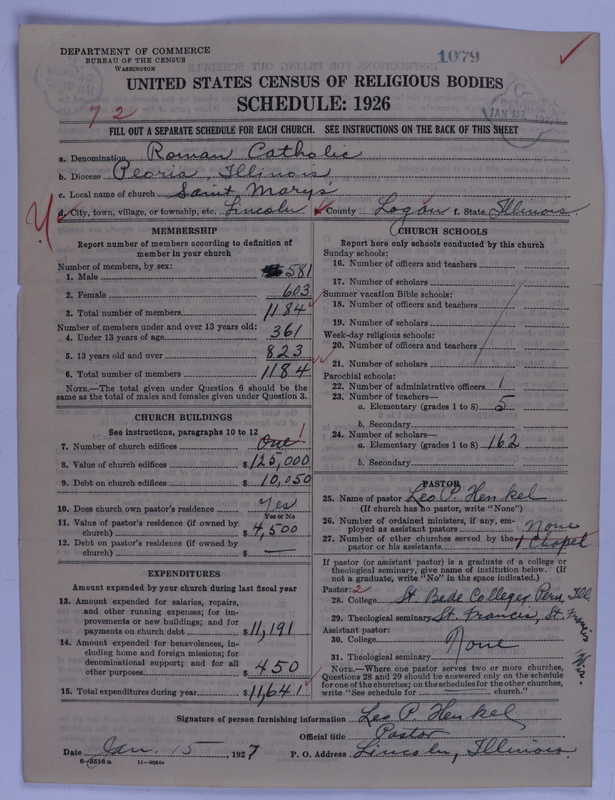 DEPARTMENT OF COMMERCE
BUREAU OF THE CENSUS
WASHINGTON
1079
UNITED STATES CENSUS OF RELIGIOUS BODIES
SCHEDULE: 1926
7 2
FILL OUT A SEPARATE SCHEDULE FOR EACH CHURCH. SEE INSTRUCTIONS ON THE BACK OF THIS SHEET
a. Denomination Roman Catholic
b. Diocese Peoria, Illinois
c. Local name of church Saint Marys
d. City, town, village, or township, etc. Lincoln County Logan f. State Illinois.
MEMBERSHIP
Report number of members according to definition of
member in your church
Number of members, by sex:
1. Male 581
2. Female 603
3. Total number of members 1184
Number of members under and over 13 years old:
4. Under 13 years of age 361
5. 13 years old and over 823
6. Total number of members 1184
NOTE.—The total given under Question 6 should be the
same as the total of males and females given under Question 3.
CHURCH BUILDINGS
See instructions, paragraphs 10 to 12
7. Number of church edifices One 1
8. Value of church edifices $125,000
9. Debt on church edifices $10,050
10. Does church own pastor's residence? Yes
Yes or No
11. Value of pastor's residence (if owned by
church) $4,500
12. Debt on pastor's residence (if owned by
church) $ —
EXPENDITURES
Amount expended by your church during last fiscal year
13. Amount expended for salaries, repairs,
and other running expenses; for im-
provements or new buildings; and for
payments on church debt $11,191
14. Amount expended for benevolences, in-
cluding home and foreign missions; for
denominational support; and for all
other purposes $450
15. Total expenditures during year $11,641
CHURCH SCHOOLS
Report here only schools conducted by this church
Sunday schools:
16. Number of officers and teachers
17. Number of scholars
Summer vacation Bible schools:
18. Number of officers and teachers
19. Number of scholars
Week-day religious schools:
20. Number of officers and teachers
21. Number of scholars
Parochial schools:
22. Number of administrative officers 1
23. Number of teachers—
a. Elementary (grades 1 to 8) 5
b. Secondary
24. Number of scholars—
a. Elementary (grades 1 to 8) 162
b. Secondary
PASTOR
25. Name of pastor Leo P. Henkel
(If church has no pastor, write "None")
26. Number of ordained ministers, if any, em-
ployed as assistant pastors None
27. Number of other churches served by the
pastor or his assistants 1 Chapel
If pastor (or assistant pastor) is a graduate of a college or
theological seminary, give name of institution below. (If
not a graduate, write "No" in the space indicated.)
Pastor: 2
28. College St. Bede College, Peru, Ill.
29. Theological seminary St. Francis, St. Francis Wis.
Assistant pastor:
30. College None
31. Theological seminary
NOTE.—Where one pastor serves two or more churches,
Questions 28 and 29 should be answered only on the schedule
for one of the churches; on the schedules for the other churches,
write "See schedule for church."
Signature of person furnishing information Leo P. Henkel
Official title Pastor
Date Jan. 15, 1927 P. O. Address Lincoln, Illinois.